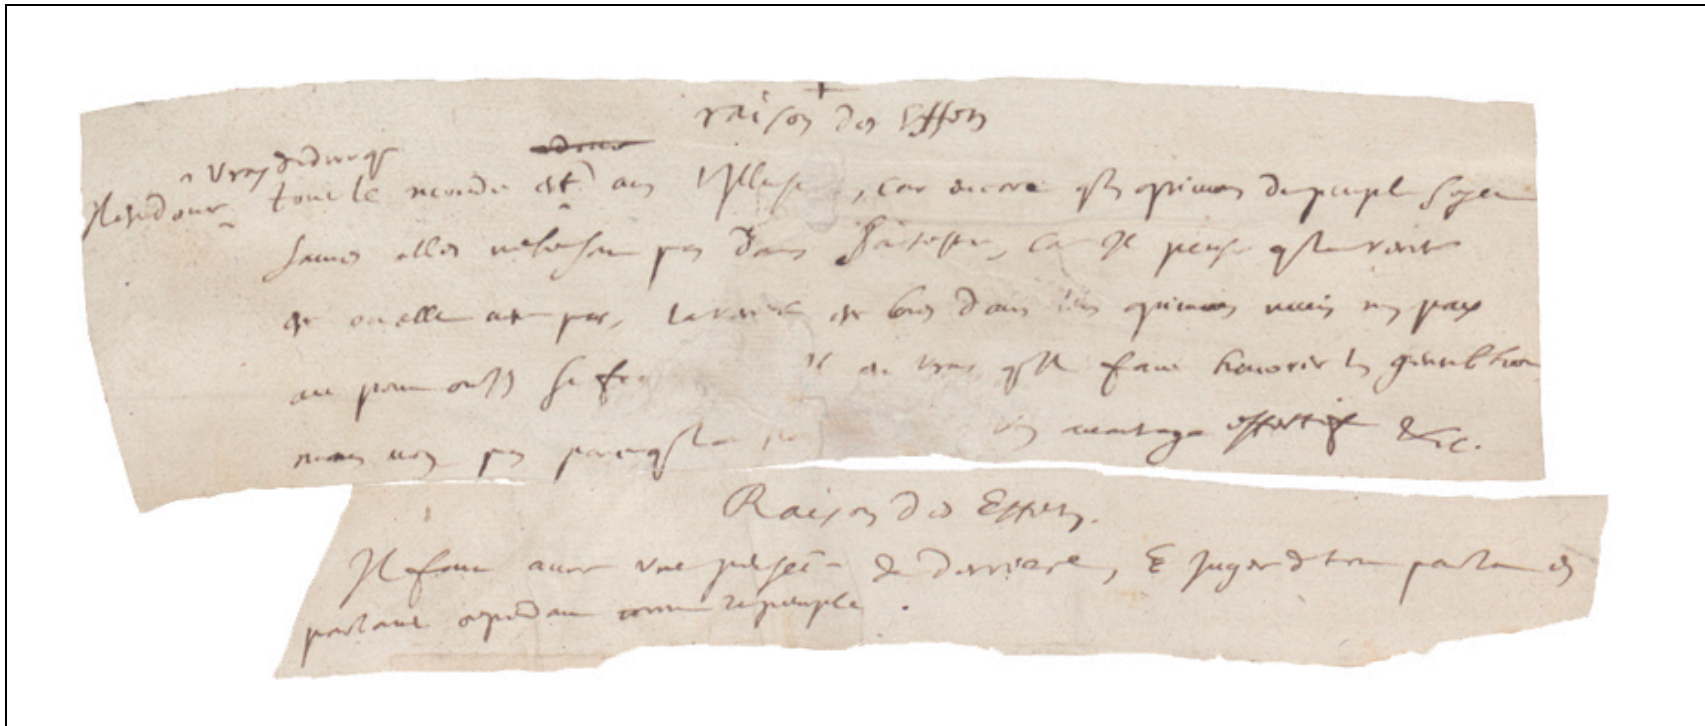 raison des effets
vray de dire que
Il est donc tout le monde est dans l'illusion, car encore que les opinions du peuple soyent
saines elles ne le sont pas dans sa teste, car Il pense que la verité
est ou elle n'est pas, la verité est bien dans leurs opinions mais non pas
au point ou Ils se fig Il est vray qu'Il faut honorer les gentilshommes
mais non pas parce que la un avantage effectif &c.
Raison des Effets.
Il faut avoir une pensée de derriere, & Juger de tout par la en
parlant cependant comme le peuple.